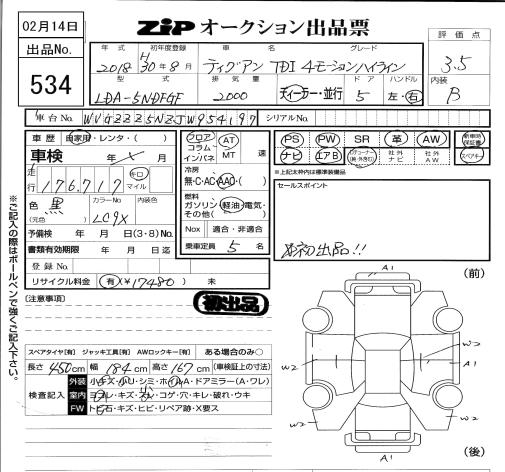 02月14日
ZiP オークション出品票
評価点
出品No.
534
年式 初年度登録 車名 グレード
2018 H30年8月 ティグアン TDI 4モーションハイライン
3.5
型式 排気量 ドア ハンドル
LDA-5NDFGF 2000 ディーラー・並行 5 左・右
内装
B
車台No. WVGZZZ5NZJW954197 シリアルNo.
車歴 自家用・レンタ・( )
フロア コラム インパネ AT MT 速
PS PW SR 革 AW 新車時保証書
車検 年 月
ナビ エアB 社外ナビ 社外AW スペアキー
※上記太枠内は標準装備品
走行 176,717 キロ マイル
冷房
無・C・AC・AAC・( )
セールスポイント
初出品!!
色 黒 (元色) カラーNo. LC9X 内装色
燃料
ガソリン・軽油・電気・その他( )
予備検 年 月 日(3・8)No.
Nox 適合・非適合
書類有効期限 年 月 日迄
乗車定員 5 名
登録No.
リサイクル料金 有(¥17480) 未
(注意事項)
初出品
※ご記入の際はボールペンで強くご記入下さい。
(前)
A1
W2
A1
W2
W2
A1
(後)
スペアタイヤ[有] ジャッキ工具[有] AWロックキー[有] ある場合のみ○
長さ 450cm 幅 184cm 高さ 167cm (車検証上の寸法)
検査記入
外装 小キズ・小リ・シミ・ホ・A・ドアミラー(A・ワレ)
室内 ヨゴレ・キズ・スレ・コゲ・穴・キレ・破れ・ウキ
FW トビ石・キズ・ヒビ・リペア跡・X要ス